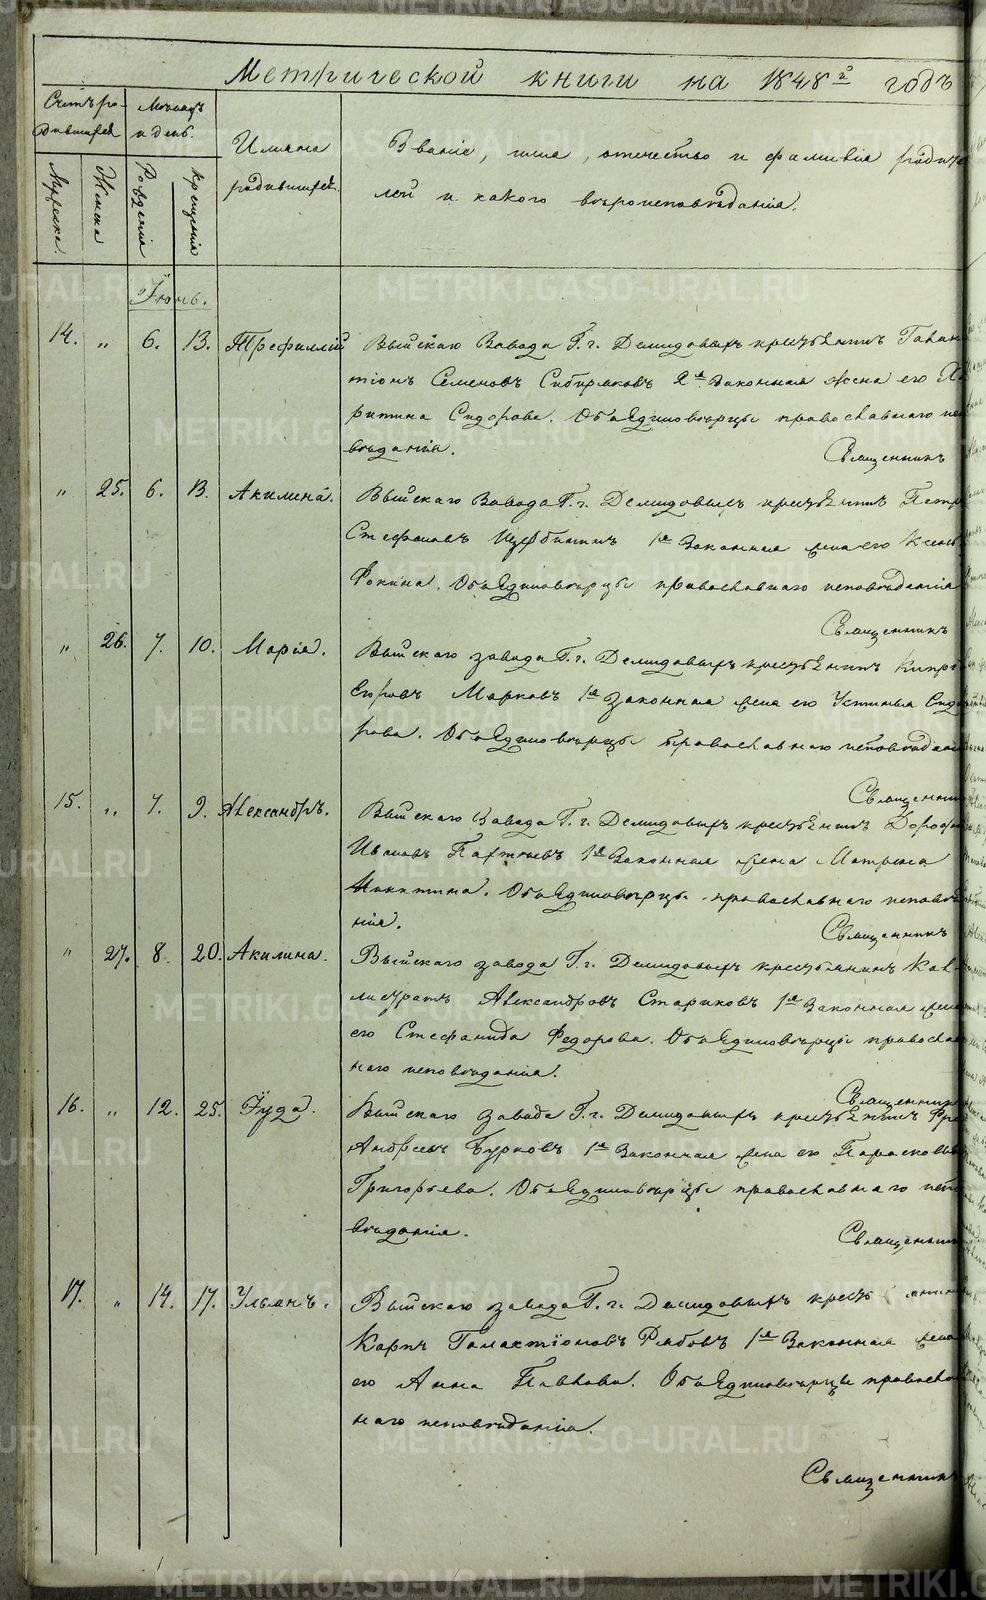 Метрической книги на 1848й годъ
Счетъ ро-
дившихся
Мѣсяцъ
и день.
Имяна
родившихся.
Званіе, имя, отечество и фамилія родите
лей и какого вѣроисповѣданія.
Мужеска.
Женска
Рожденія
крещенія
Іюнь.
14. „ 6. 13. Трефиллій Выйскаго Завода Г. г. Демидовыхъ крестьянинъ Галак
тіонъ Семеновъ Сибиряковъ 2я Законная жена его Ха
ритина Сидорова. Оба Единовѣрцы православнаго ис
вѣданія.
Священникъ
„ 25. 6. 13. Акилина. Выйскаго Завода Г. г. Демидовыхъ крестьянинъ Петр
Стефановъ Щербининъ 1я Законная жена его Ксень
Фокина. Оба Единовѣрцы православнаго исповѣданія
Священникъ
„ 26. 7. 10. Марія. Выйскаго завода Г. г. Демидовыхъ крестьянинъ Кипрі
Егоровъ Марковъ 1я Законная жена его Устинья Сидо
рова. Оба Единовѣрцы православнаго исповѣдані
Священник
15. „ 7. 9. Александръ. Выйскаго Завода Г. г. Демидовыхъ крестьянинъ Дорофе
Ивановъ 1я Законная жена Матрына
Никитина. Оба Единовѣрцы православнаго исповѣда
нія.
Священникъ
„ 27. 8. 20. Акилина. Выйскаго завода Г. г. Демидовыхъ крестьянинъ Кал-
листратъ Александровъ Стариковъ 1я Законная жена
его Стефанида Федорова. Оба Единовѣрцы православ
наго исповѣданія.
Священникъ
16. „ 12. 25. Іуда. Выйскаго завода Г. г. Демидовыхъ крестьянинъ
Андреевъ Бурковъ 1я Законная жена его Парасковья
Григорьева. Оба Единовѣрцы православнаго испо
вѣданія.
Священник
17. „ 14. 17. Ульянъ. Выйскаго завода Г. г. Демидовыхъ крестьянинъ
Карпъ Галактіоновъ Рябовъ 1я Законная жена
его Анна Павлова. Оба Единовѣрцы православ
наго исповѣданія.
Священникъ
METRIKI.GASO-URAL.RU